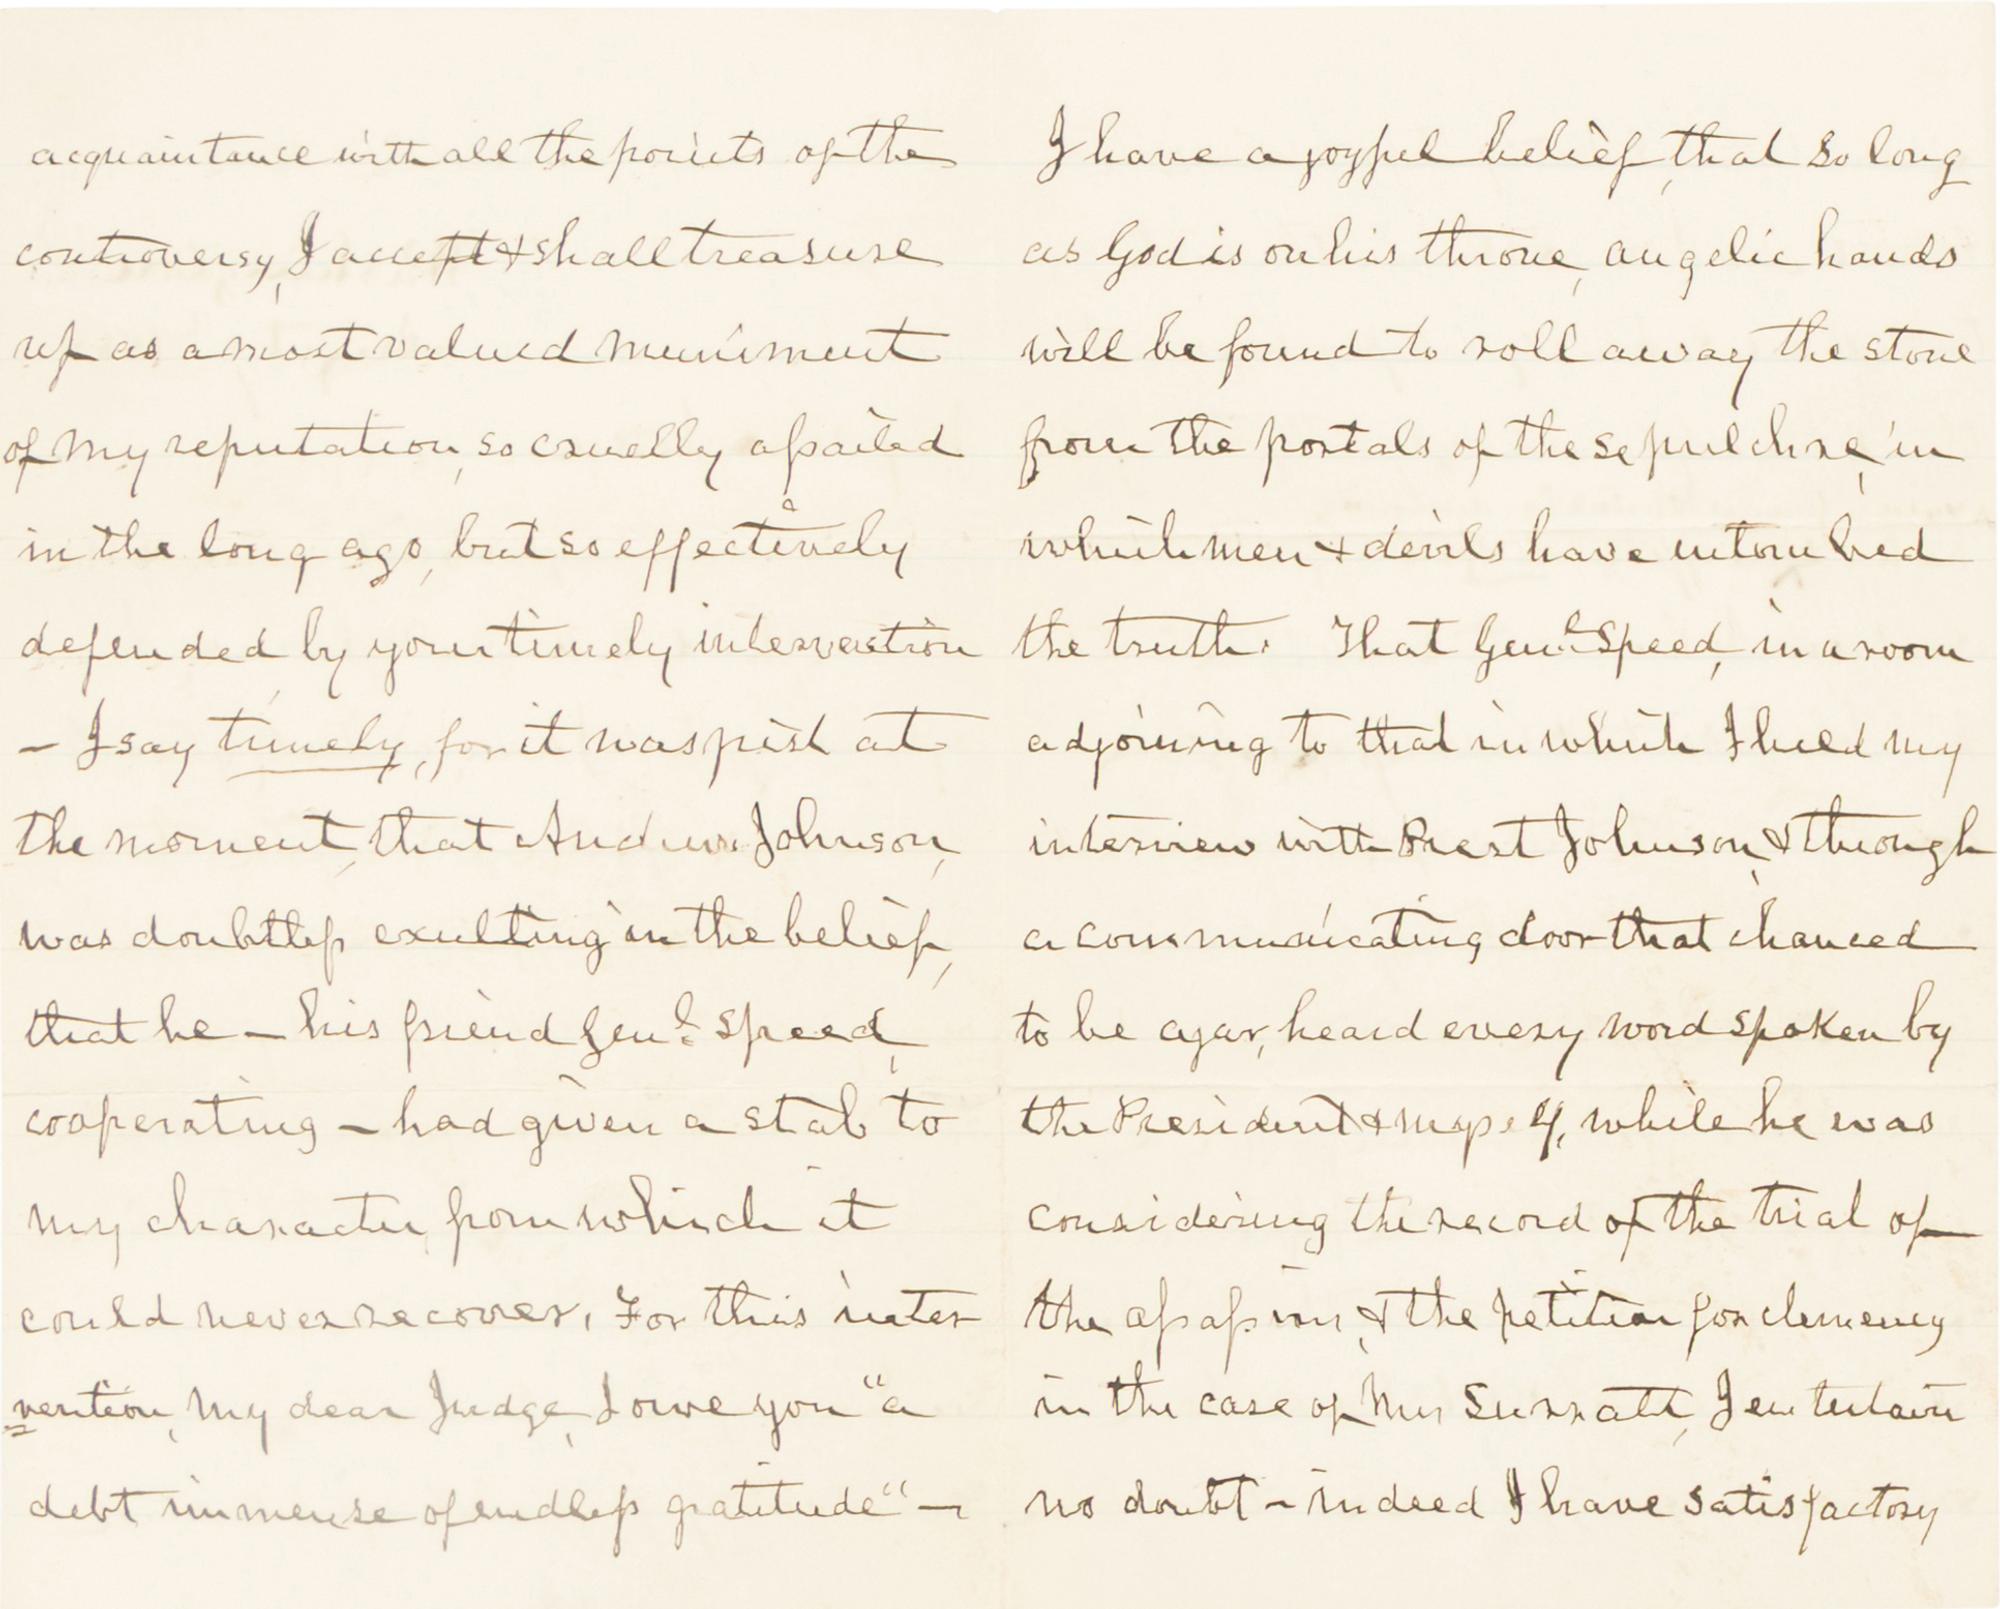 acquaintance with all the points of the
controversy, I accept & shall treasure
up as a most valued muniment
of my reputation, so cruelly assailed
in the long ago, but so effectively
defended by your timely intervention
- I say timely, for it was just at
the moment, that Andrew Johnson,
was doubtless exulting in the belief,
that he - his friend Genl Speed,
cooperating - had given a stab to
my character, from which it
could never recover. For this inter
vention, my dear Judge, I owe you "a
debt immense of endless gratitude" -
I have a joyful belief, that so long
as God is on his throne, angelic hands
will be found to roll away the stone
from the portals of the sepulchre, in
which men & devils have entombed
the truth. That Genl Speed, in a room
adjoining to that in which I held my
interview with Prest Johnson, & through
a communicating door that chanced
to be ajar, heard every word spoken by
the President & myself, while he was
considering the record of the trial of
the assassins, & the petition for clemency
in the case of Mrs Surratt, I entertain
no doubt - indeed I have satisfactory